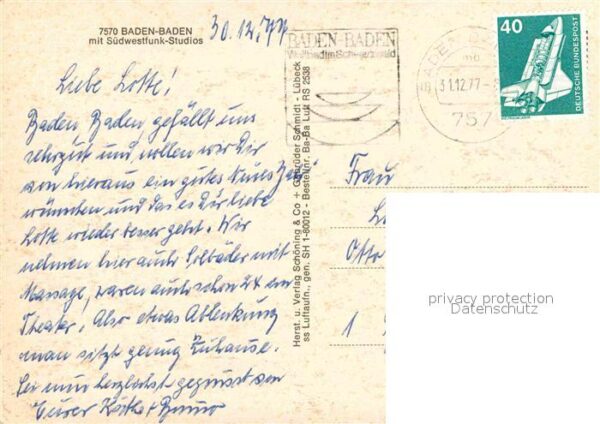 7570 BADEN-BADEN
mit Südwestfunk-Studios
30.12.77
Liebe Lotte!
Baden Baden gefällt uns
sehrgut und wollen wir Dir
von hieraus ein gutes Neues
wünschen und das es Dir liebe
Lotte wieder besser geht. Wir
nehmen hier auch Solbäder mit
Massage, waren auch schon 2x im
Theater. Also etwas Ablenkung
man sitzt genug Zuhause.
Sei nun herzlichst gegrüsst von
Eurer Käthe + Bruno
Herst. u. Verlag Schöning & Co + Gebrüder Schmidt - Lübeck
ss Luftaufn., gen. SH 1-80012 - Bestellnr. Ba-Ba Luft RS 2538
BADEN-BADEN
Weltbad im Schwarzwald
BADEN-BADEN
mb
31.12.77
757
40
DEUTSCHE BUNDESPOST
Frau
Otto
1
privacy protection
Datenschutz